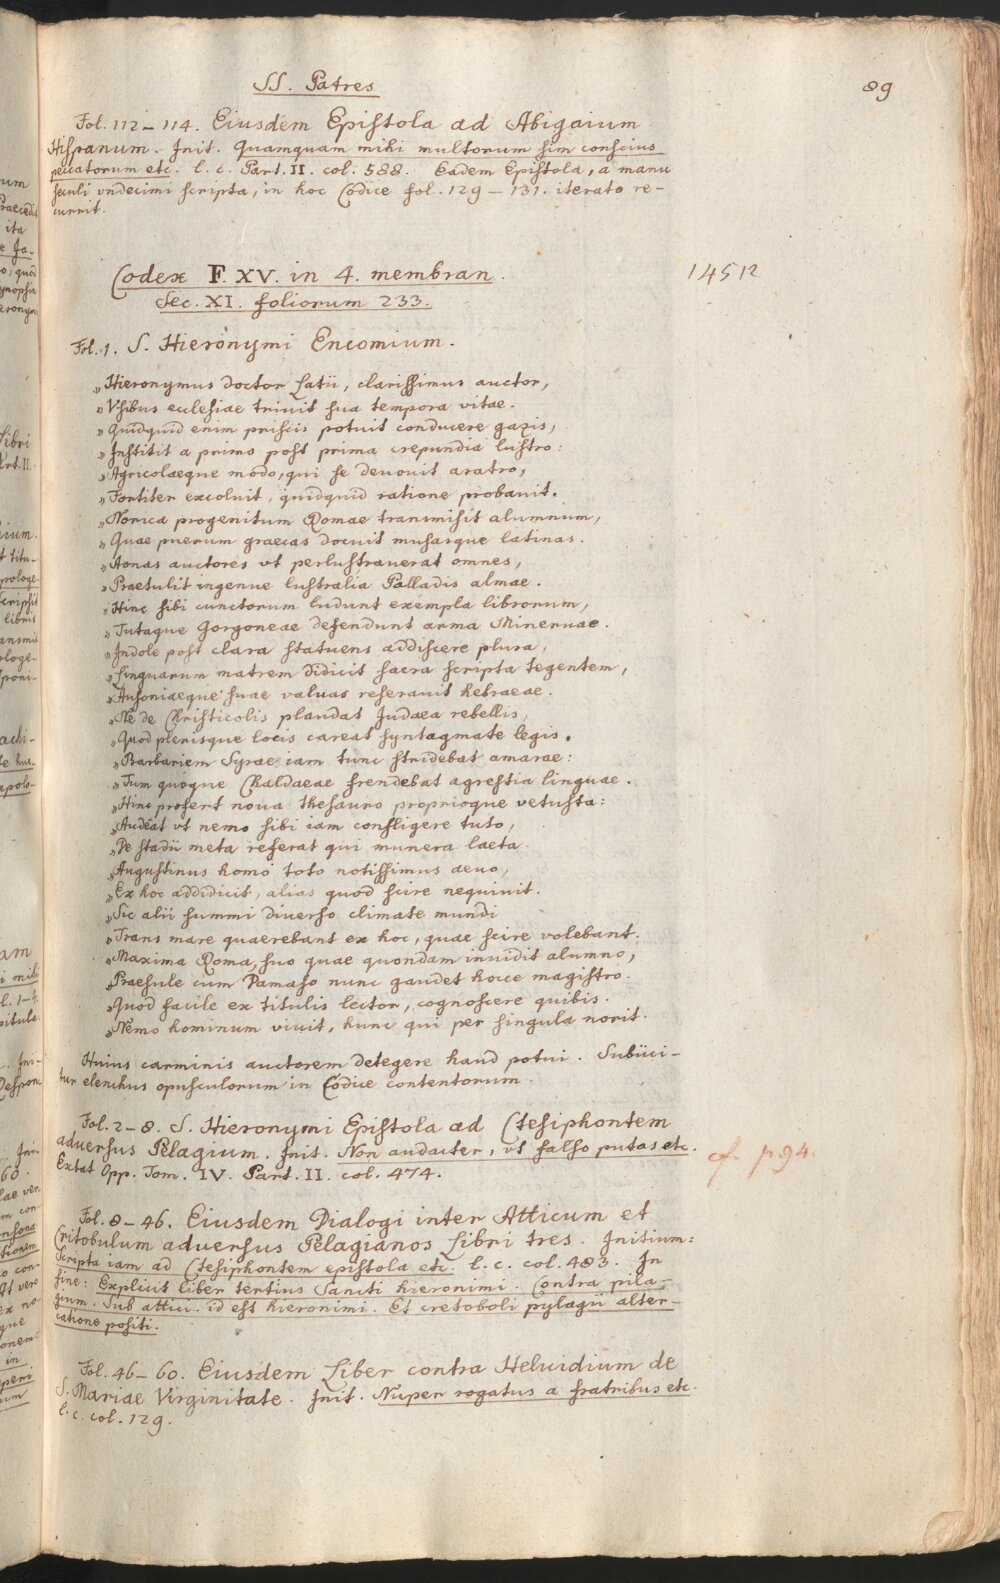 SS. Patres
89
Fol. 112–114. Eiusdem Epistola ad Abigaium
Hispanum. Init. Quamquam mihi multorum sim conscius
peccatorum etc. l. c. Part. II. col. 588. Eadem Epistola, a manu
seculi vndecimi scripta, in hoc Codice fol. 129–131. iterato re-
currit.
Codex F. XV. in 4. membran.
14512
Sec. XI. foliorum 233.
Fol. 1. S. Hieronymi Encomium.
„Hieronymus doctor Latii, clarissimus auctor,
„Vsibus eclesiae triuit sua tempora vitae.
„Quidquid enim priscis potuit conducere gazis,
„Institit a primo post prima crepundia lustro:
„Agricolaeque modo, qui se deuouit aratro,
„Fortiter excoluit, quidquid ratione probauit.
„Norica progenitum Romae transmisit alumnum,
„Quae puerum graecas docuit musasque latinas.
„Aonas auctores vt perlustrauerat omnes,
„Praetulit ingenue lustralia Palladis almae.
„Hinc sibi cunctorum ludunt exempla librorum,
„Tutaque Gorgoneae defendunt arma Mineruae.
„Indole post clara statuens addiscere plura,
„Linguarum matrem didicit sacra scripta tegentem,
„Ausoniaeque suae valuas reserauit hebraeae.
„Ne de Christicolis plaudat Judaea rebellis,
„Quod plerisque locis careat syntagmate legis.
„Barbariem Syrae iam tunc stridebat amarae:
„Tum quoque Chaldaeae frendebat agrestia linguae.
„Hinc profert noua thesauro proprioque vetusta:
„Audeat vt nemo sibi iam confligere tuto,
„De stadii meta referat qui munera laeta.
„Augustinus homo toto notissimus aeuo,
„Ex hoc addidicit, alias quod scire nequiuit.
„Sic alii summi diuerso climate mundi
„Trans mare quaerebant ex hoc, quae scire volebant.
„Maxima Roma, suo quae quondam inuidit alumno,
„Praesule cum Damaso nunc gaudet hocce magistro.
„Quod facile ex titulis lector, cognoscere quibis.
„Nemo hominum viuit, hunc qui per singula norit.
Huius carminis auctorem detegere haud potui. Subiici-
tur elenchus opusculorum in Codice contentorum.
Fol. 2–8. S. Hieronymi Epistola ad Ctesiphontem
aduersus Pelagium. Init. Non audacter, vt falso putas etc.
cf. p 94.
Extat Opp. Tom. IV. Part. II. col. 474.
Fol. 8–46. Eiusdem Dialogi inter Atticum et
Critobulum aduersus Pelagianos Libri tres. Initium:
Scripta iam ad Ctesiphontem epistola etc. l. c. col. 483. In
fine: Explicit liber tertius Sancti hieronimi. Contra pila-
gium. Sub attici. id est hieronimi. Et cretoboli pylagii alter-
catione positi.
Fol. 46–60. Eiusdem Liber contra Heluidium de
S. Mariae Virginitate. Init. Nuper rogatus a fratribus etc.
l. c. col. 129.